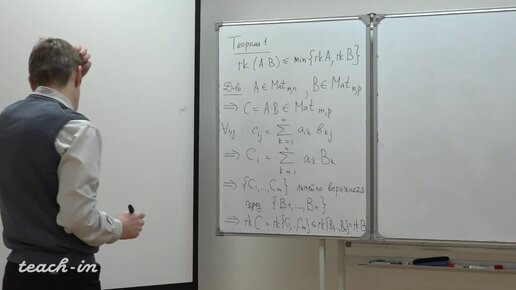 Теорема 1
rk (A B) ≤ min {rk A, rk B}
Д-во A ∈ Mat m,n , B ∈ Mat n,p
⇒ C = A B ∈ Mat m,p
∀ i,j : c_ij = ∑_{k=1}^{n} a_ik b_kj
⇒ C_i = ∑_{k=1}^{n} a_ik B_k
⇒ {C_1,...,C_m} линейно выражается
через {B_1,...,B_n}
⇒ rk C = rk{C_1,...,C_m} ≤ rk{B_1,...,B_n} = rk B
teach-in